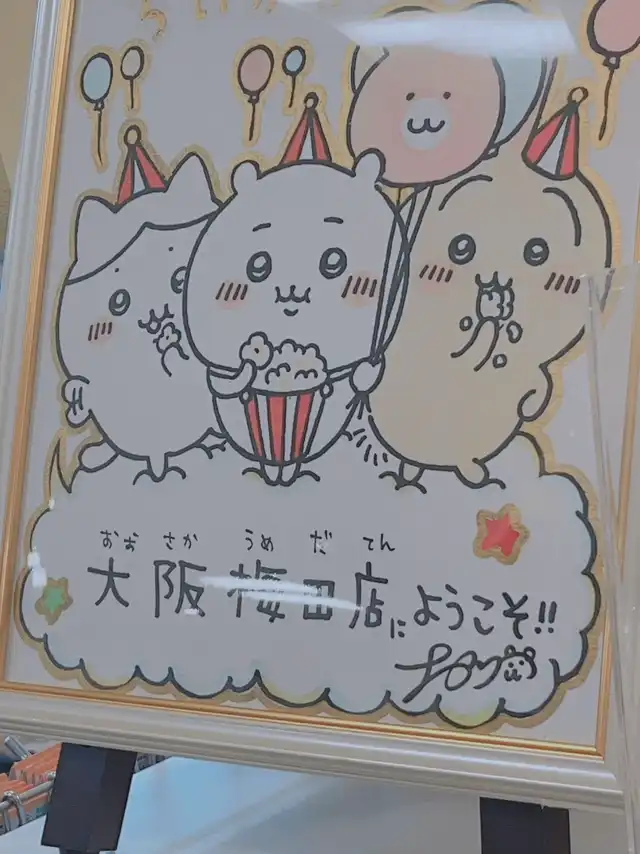 おお さか うめ だ てん
大阪梅田店にようこそ!!